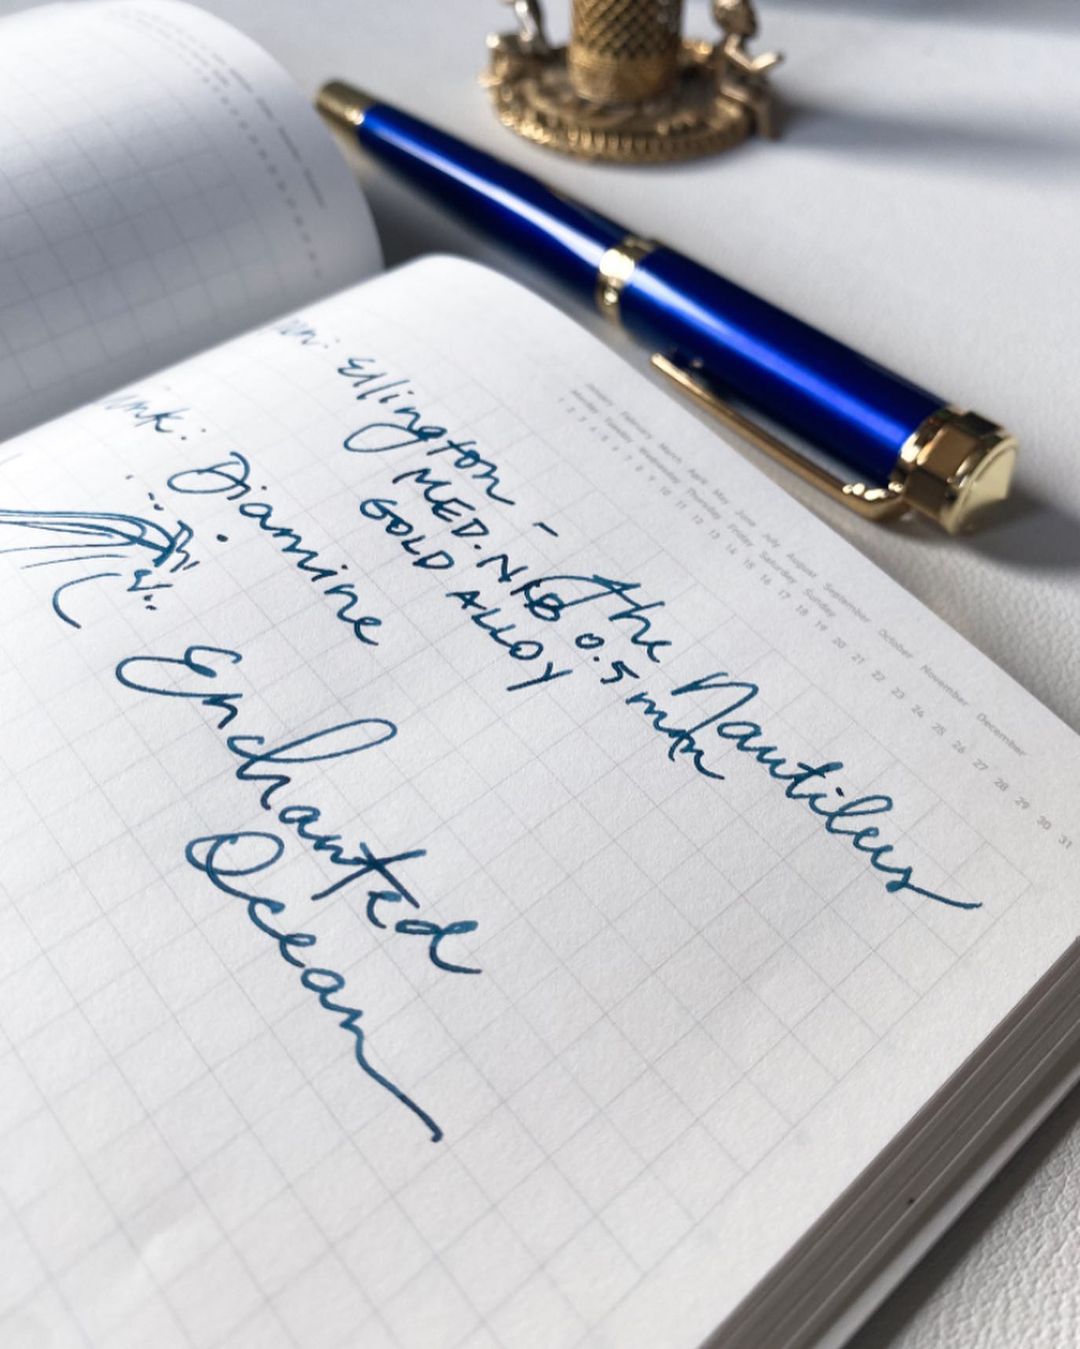 January February March April May June July August September October November December
Monday Tuesday Wednesday Thursday Friday Saturday Sunday
1 2 3 4 5 6 7 8 9 10 11 12 13 14 15 16 17 18 19 20 21 22 23 24 25 26 27 28 29 30 31
Ellington - The Nautilus
MED. NIB 0.5 mm
GOLD ALLOY
ink: Diamine
Enchanted
Ocean